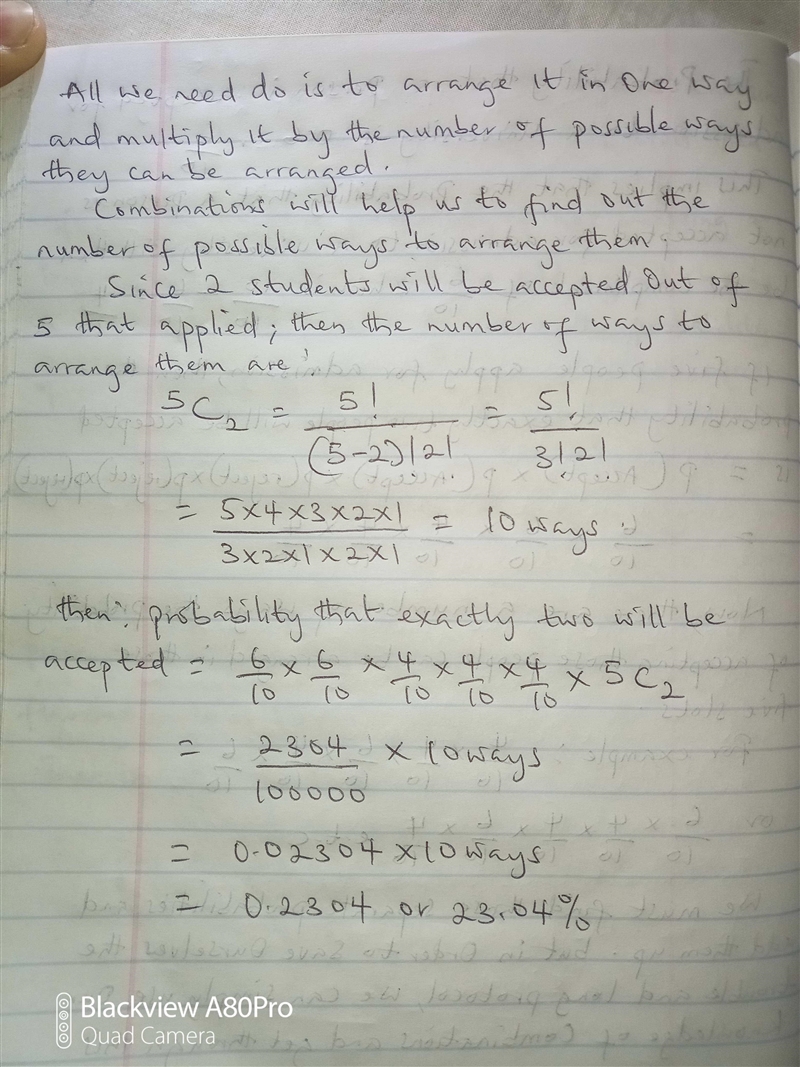 All we need do is to arrange it in one way
and multiply it by the number of possible ways
they can be arranged.
Combinations will help us to find out the
number of possible ways to arrange them.
Since 2 students will be accepted out of
5 that applied; then the number of ways to
arrange them are:
5C2 = 5!/(5-2)!2! = 5!/3!2!
= 5×4×3×2×1/3×2×1×2×1 = 10 ways.
then: probability that exactly two will be
accepted = 6/10 × 6/10 × 4/10 × 4/10 × 4/10 × 5C2
= 2304/100000 × 10 ways
= 0.02304 × 10 ways
= 0.2304 or 23.04%
Blackview A80Pro
Quad Camera